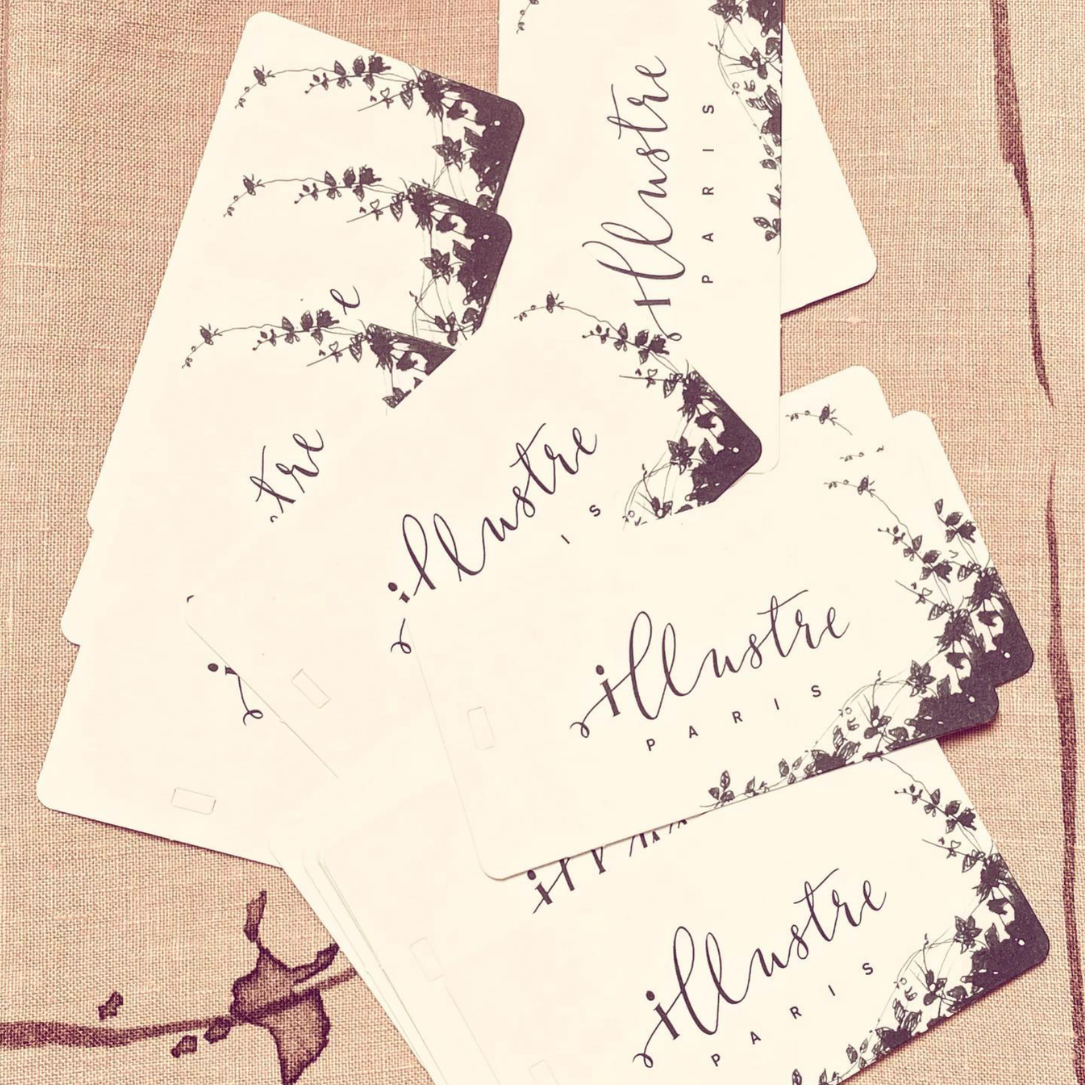 illustre
PARIS
e
tre
illustre
IS
illustre
PARIS
illustre
PARIS